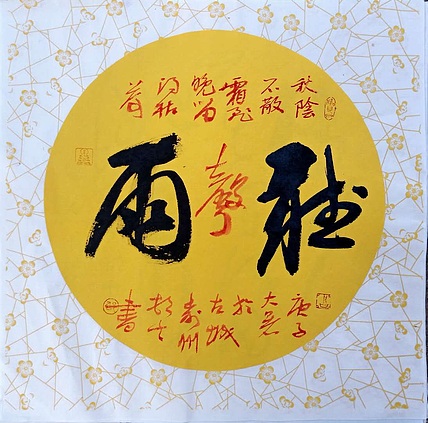 秋陰
不散
霜飛
晚留
得枯
荷
聽雨
聲
庚子
大暑
於
古城
壽州
書